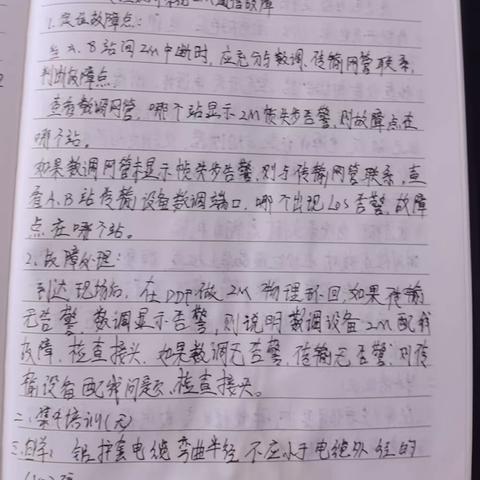 1.定位故障点:
当A.B站间2M中断时,应充分与数调、传输网管联系,
判断故障点
查看数调网管,哪个站显示2M帧失步告警,则故障点在
哪个站。
如果数调网管未显示帧失步告警,则与传输网管联系,查
看A.B站传输设备数调端口,哪个出现LOS告警,故障
点在哪个站。
2.故障处理:
到达现场后,在DDF做2M物理环回,如果传输
无告警,数调显示告警,则说明数调设备2M配线
故障,检查接头.如果数调无告警,传输无告警,则传
输设备配线问题,检查接头。
二、集中培训(无)
三.自学: 铝护套电缆弯曲半径不应小于电缆外径的